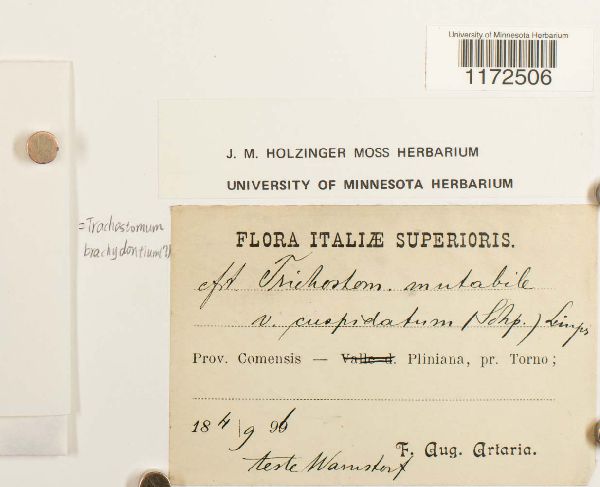 University of Minnesota Herbarium
1172506
J. M. HOLZINGER MOSS HERBARIUM
UNIVERSITY OF MINNESOTA HERBARIUM
=Trachostomum
brachydontium(?)
FLORA ITALIÆ SUPERIORIS.
cfr Trichostom. mutabile
v. cuspidatum (Schp.) Limpr
Prov. Comensis — Valle d. Pliniana, pr. Torno;
18 4/9 96
F. Aug. Artaria.
teste Warnstorf